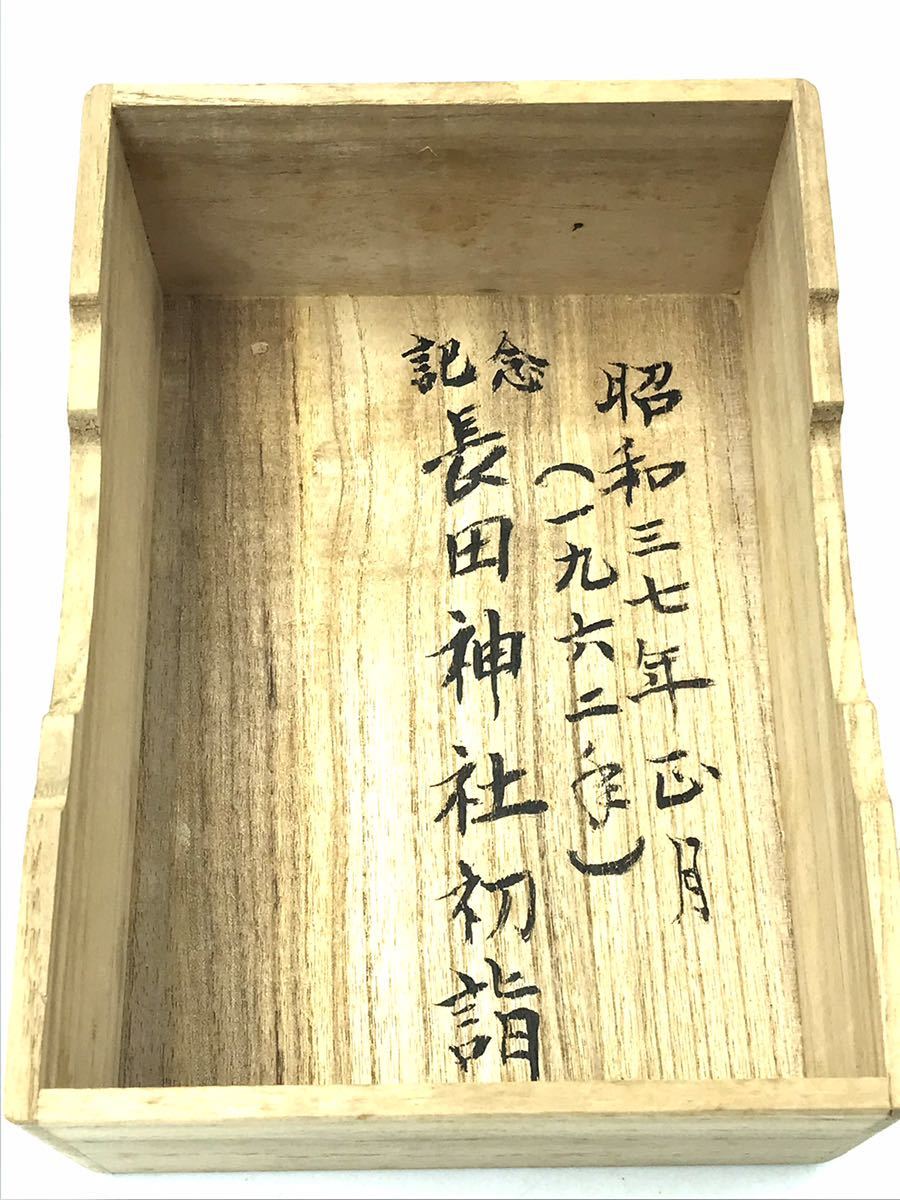 昭和三七年正月
（一九六二年）
記念
長田神社初詣